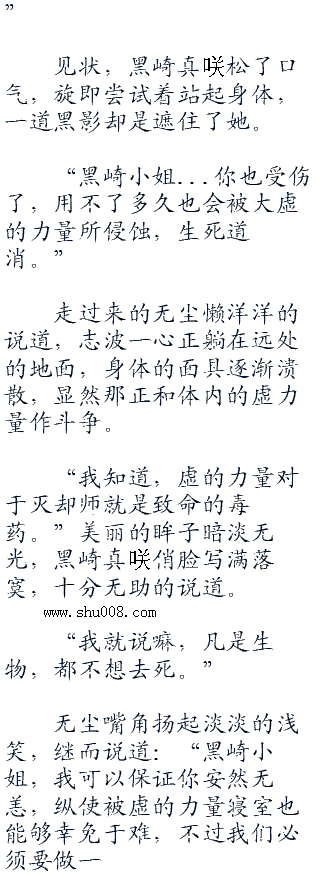 ”
见状，黑崎真咲松了口
气，旋即尝试着站起身体，
一道黑影却是遮住了她。
“黑崎小姐...你也受伤
了，用不了多久也会被大虚
的力量所侵蚀，生死道
消。”
走过来的无尘懒洋洋的
说道，志波一心正躺在远处
的地面，身体的面具逐渐溃
散，显然那正和体内的虚力
量作斗争。
“我知道，虚的力量对
于灭却师就是致命的毒
药。”美丽的眸子暗淡无
光，黑崎真咲俏脸写满落
寞，十分无助的说道。
www.shu008.com
“我就说嘛，凡是生
物，都不想去死。”
无尘嘴角扬起淡淡的浅
笑，继而说道：“黑崎小
姐，我可以保证你安然无
恙，纵使被虚的力量寝室也
能够幸免于难，不过我们必
须要做一